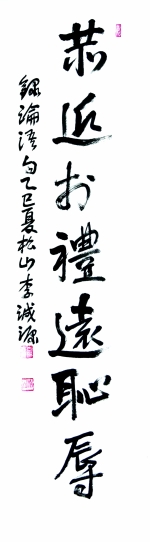 恭近於禮遠恥辱
錄論語句乙巳夏松山李誠源